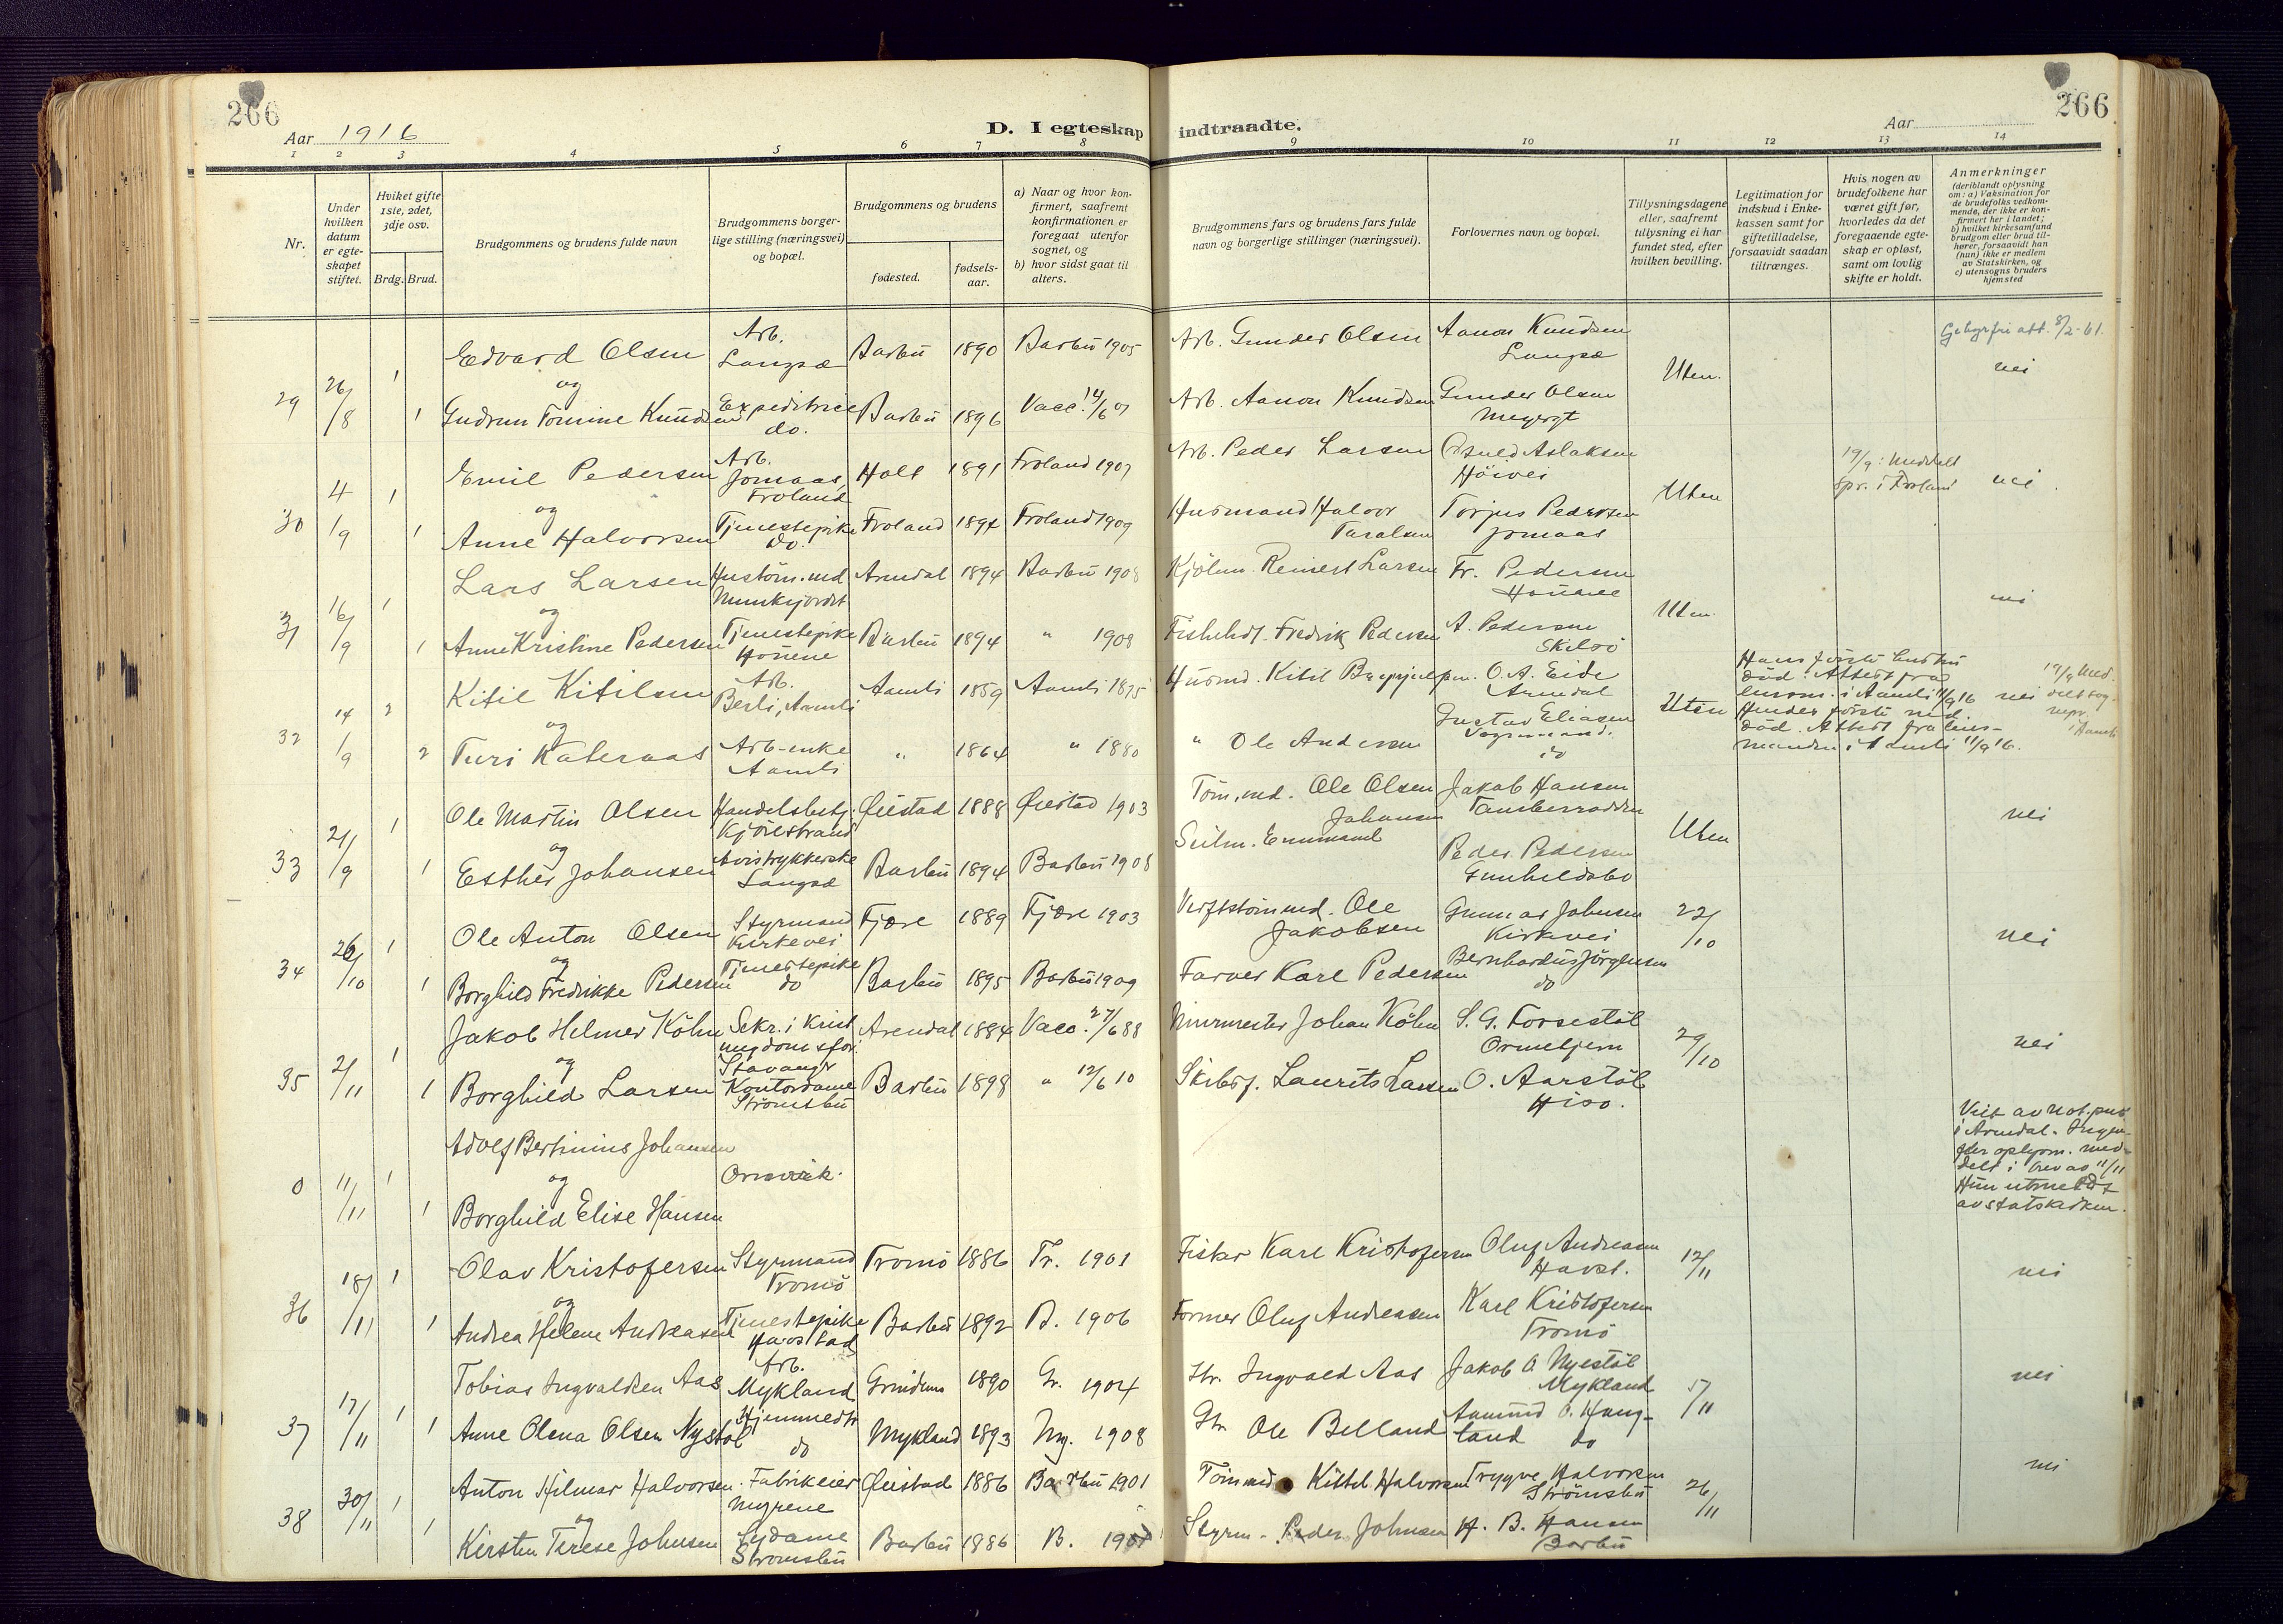 266
Aar 1916
D. I egteskap indtraadte.
Aar
266
1 2 3 4 5 6 7 8 9 10 11 12 13 14
Nr.
Under hvilken datum er egteskapet stiftet.
Hviket gifte 1ste, 2det, 3dje osv.
Brdg. Brud.
Brudgommens og brudens fulde navn
Brudgommens borgerlige stilling (næringsvei) og bopæl.
Brudgommens og brudens
fødested.
fødselsaar.
a) Naar og hvor konfirmert, saafremt konfirmationen er foregaat utenfor sognet, og
b) hvor sidst gaat til alters.
Brudgommens fars og brudens fars fulde navn og borgerlige stillinger (næringsvei).
Forlovernes navn og bopæl.
Tillysningsdagene eller, saafremt tillysning ei har fundet sted, efter hvilken bevilling.
Legitimation for indskud i Enkekassen samt for giftetilladelse, forsaavidt saadan tiltrænges.
Hvis nogen av brudefolkene har været gift før, hvorledes da det foregaaende egteskap er opløst, samt om lovlig skifte er holdt.
Anmerkninger
(deriblandt oplysning om: a) Vaksination for de brudefolks vedkommende, der ikke er konfirmert her i landet;
b) hvilket kirkesamfund brudgom eller brud tilhører, forsaavidt han (hun) ikke er medlem av Statskirken, og
c) utensogns bruders hjemsted
29 26/8 1 Edvard Olsen Arb. Langsæ Barbu 1890 Barbu 1905 Arb. Gunder Olsen Aanon Knudsen Langsæ Uten. nei Gebyrfri att. 8/2-61.
og
1 Gudrun Tomine Knudsen Expeditrice do. Barbu 1896 Vacc. 14/6 07 Arb. Aanon Knudsen Gunder Olsen
30 4/9 1 Emil Pedersen Arb. Jomaas, Froland Holt 1891 Froland 1907 Arb. Peder Larsen Aslaksen Höivei Uten 19/9: Meddelt spr. i Froland nei
og
1 Anne Halvorsen Tjenestepike do. Froland 1894 Froland 1909 Husmand Halvor Taralsen Torjus Pedersen Jomaas
31 16/9 1 Lars Larsen Hustöm.md Munkejordet Arendal 1894 Barbu 1908 Kjölm. Reinert Larsen Fr. Pedersen Uten. nei
og
1 Anne Kristine Pedersen Tjenestepike Barbu 1894 " 1908 Fredrik Pedersen A. Pedersen Skilsö
32 14/9 2 Kitil Kitilsen Arb. Berli, Aamli Aamli 1859 Aamli 1875 Husmd. Kitil O. A. Eide Arendal Uten Hans förste hustru död. Attest fra lensm. i Aamli 11/9 16 nei 19/9 Meddelt sognepr. i Aamli
og
2 Turi Kateraas Arb-enke Aamli " 1864 " 1880 " Ole Andersen Gustav Eliasen Vognmand. do Hendes förste md död. Attest fra lensmanden i Aamli 11/9 16.
33 21/9 1 Ole Martin Olsen Handelsbetj. Öiestad 1888 Öiestad 1903 Töm.md. Ole Olsen Jakob Hansen Uten nei
og
1 Esther Johansen Avistrykkerske Langsæ Barbu 1894 Barbu 1908 Seilm. Emmanuel Johansen Peder Pedersen Gunhildsbo
34 26/10 1 Ole Anton Olsen Styrmand Kirkevei Fjære 1889 Fjære 1903 Verftstömmd. Ole Jakobsen Gunnar Johnsen Kirkevei 22/10 nei
og
1 Borghild Fredrikke Pedersen Tjenestepike do Barbu 1895 Barbu 1909 Farver Karl Pedersen Bernhardus Jörgensen do
35 2/11 1 Jakob Helmer Köhn Sekr. i Krist. ungdomsfor. Stavanger Arendal 1884 Vacc. 27/6 88 Murmester Johan Köhn S. G. Forsestöl 29/10 nei
og
1 Borghild Larsen Kontordame Strömsbu Barbu 1898 " 12/6 10 Skibsf. Laurits Larsen O. Aarstöl Hisö.
0 11/11 1 Adolf Bertinius Johansen Viet av not. pub. i Arendal. Ingen fler oplysn. meddelt i brev av 11/11 Hun utmeldt av statskirken.
og
1 Borghild Elise Hansen
36 18/11 1 Olav Kristofersen Styrmand Tromö Tromö 1886 Tr. 1901 Fisker Karl Kristofersen Oluf Andreasen Havst. 12/11 nei
og
1 Andrea Helene Andreasen Tjenestepike Havstad Barbu 1892 B. 1906 Former Oluf Andreasen Karl Kristofersen Tromö
37 17/11 1 Tobias Ingvaldsen Aas Arb. Mykland 1890 Gr. 1904 Ingvald Aas Jakob O Nyestöl Mykland 5/11 nei
1 Anne Olena Olsen Nystöl Hjemmedtr do Mykland 1893 My. 1908 Ole Belland Aamund O. Haugland do
38 30/11 1 Anton Hilmar Halvorsen Fabrikeier Myrene Öiestad 1886 Barbu 1901 Tömmd Kittil Halvorsen Trygve Halvorsen Strömsbu 26/11 nei
og
1 Kirsten Terese Johnsen Sydame Strömsbu Barbu 1886 B. Styrm. Peder Johnsen H. B. Hansen Barbu